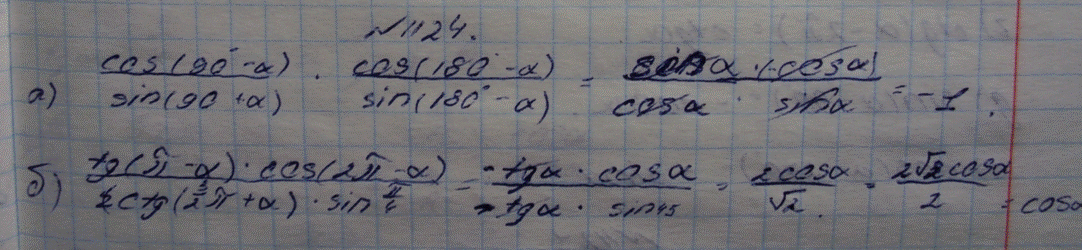 №1124.
а) cos(90°-α)/sin(90°+α) · cos(180°-α)/sin(180°-α) = sinα·(-cosα)/cosα · sinα = -1.
б) tg(π-α)·cos(2π-α)/ctg(3/2π+α)·sin π/4 = -tgα·cosα/-tgα·sin45 = 2cosα/√2 = 2√2cosα/2 = cosα